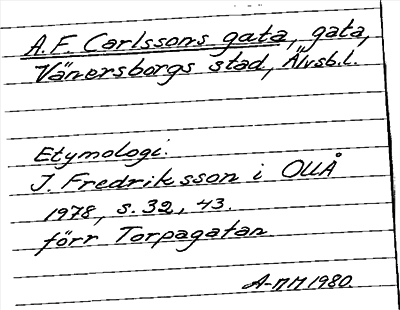 A. F. Carlssons gata, gata,
Vänersborgs stad, Älvsb.l.
Etymologi:
J. Fredriksson i OUÅ
1978, s. 32, 43.
förr Torpagatan
A-MM 1980.